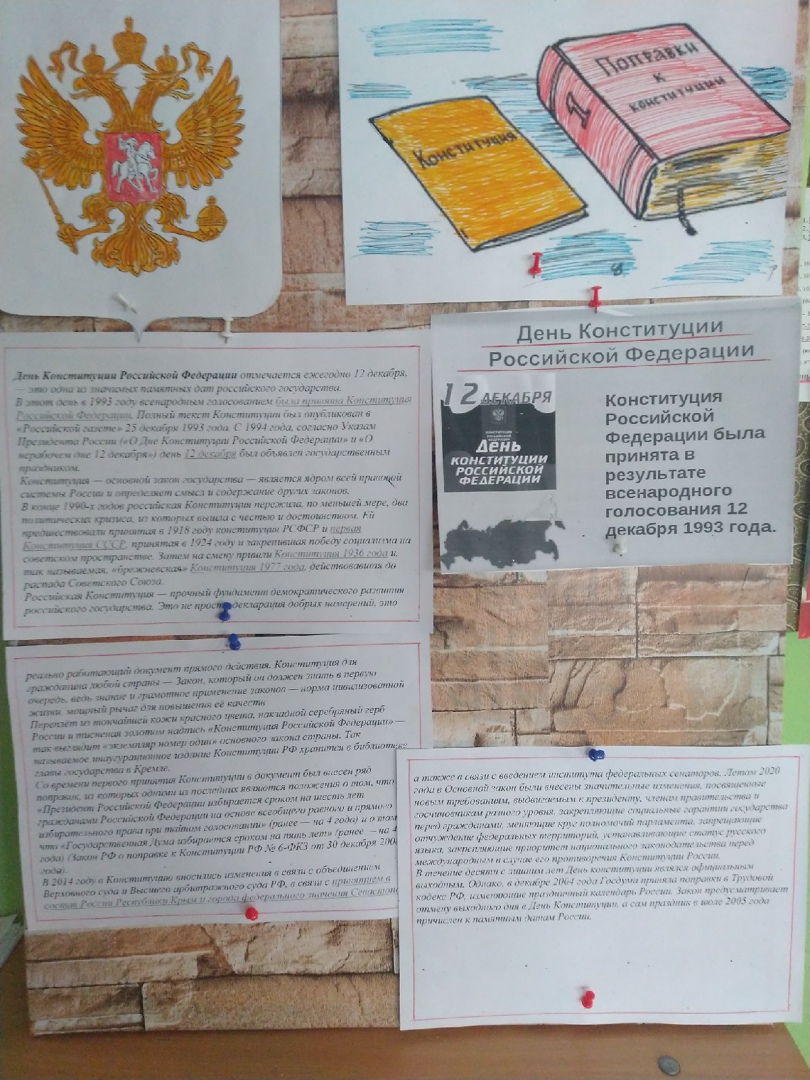 Конституция
Поправки
к
конституции
1
День Конституции Российской Федерации отмечается ежегодно 12 декабря,
— это одна из значимых памятных дат российского государства.
В этот день в 1993 году всенародным голосованием была принята Конституция
Российской Федерации. Полный текст Конституции был опубликован в
«Российской газете» 25 декабря 1993 года. С 1994 года, согласно Указам
Президента России («О Дне Конституции Российской Федерации» и «О
нерабочем дне 12 декабря») день 12 декабря был объявлен государственным
праздником.
Конституция — основной закон государства — является ядром всей правовой
системы России и определяет смысл и содержание других законов.
В конце 1990-х годов российская Конституция пережила, по меньшей мере, два
политических кризиса, из которых вышла с честью и достоинством. Ей
предшествовали принятая в 1918 году конституция РСФСР и первая
Конституция СССР, принятая в 1924 году и закрепившая победу социализма на
советском пространстве. Затем на смену пришли Конституция 1936 года и,
так называемая, «брежневская» Конституция 1977 года, действовавшая до
распада Советского Союза.
Российская Конституция — прочный фундамент демократического развития
российского государства. Это не просто декларация добрых намерений, это
День Конституции
Российской Федерации
12 ДЕКАБРЯ
День
КОНСТИТУЦИИ
РОССИЙСКОЙ
ФЕДЕРАЦИИ
Конституция
Российской
Федерации была
принята в
результате
всенародного
голосования 12
декабря 1993 года.
реально работающий документ прямого действия. Конституция для
гражданина любой страны — Закон, который он должен знать в первую
очередь, ведь знание и грамотное применение законов — норма цивилизованной
жизни, мощный рычаг для повышения её качеств
Переплёт из тончайшей кожи красного цвета, накладной серебряный герб
России и тисненая золотом надпись «Конституция Российской Федерации» —
так выглядит «экземпляр номер один» основного закона страны. Так
называемое инаугурационное издание Конституции РФ хранится в библиотеке
главы государства в Кремле.
Со времени первого принятия Конституции в документ был внесен ряд
поправок, из которых одними из последних являются положения о том, что
«Президент Российской Федерации избирается сроком на шесть лет
гражданами Российской Федерации на основе всеобщего равного и прямого
избирательного права при тайном голосовании» (ранее — на 4 года) и о том
что «Государственная Дума избирается сроком на пять лет» (ранее — на 4
года) (Закон РФ о поправке к Конституции РФ № 6-ФКЗ от 30 декабря 2008
года).
В 2014 году в Конституцию вносились изменения в связи с объединением
Верховного суда и Высшего арбитражного суда РФ, в связи с принятием в
состав России Республики Крым и города федерального значения Севастополь
а также в связи с введением института федеральных сенаторов. Летом 2020
года в Основной закон были внесены значительные изменения, посвященные
новым требованиям, выдвигаемым к президенту, членам правительства и
госчиновникам разного уровня, закрепляющие социальные гарантии государства
перед гражданами, меняющие круг полномочий парламента, запрещающие
отчуждение федеральных территорий, устанавливающие статус русского
языка, закрепляющие приоритет национального законодательства перед
международным в случае его противоречия Конституции России.
В течение десяти с лишним лет День конституции являлся официальным
выходным. Однако, в декабре 2004 года Госдума приняла поправки в Трудовой
кодекс РФ, изменяющие праздничный календарь России. Закон предусматривает
отмену выходного дня в День Конституции, а сам праздник в июле 2005 года
причислен к памятным датам России.